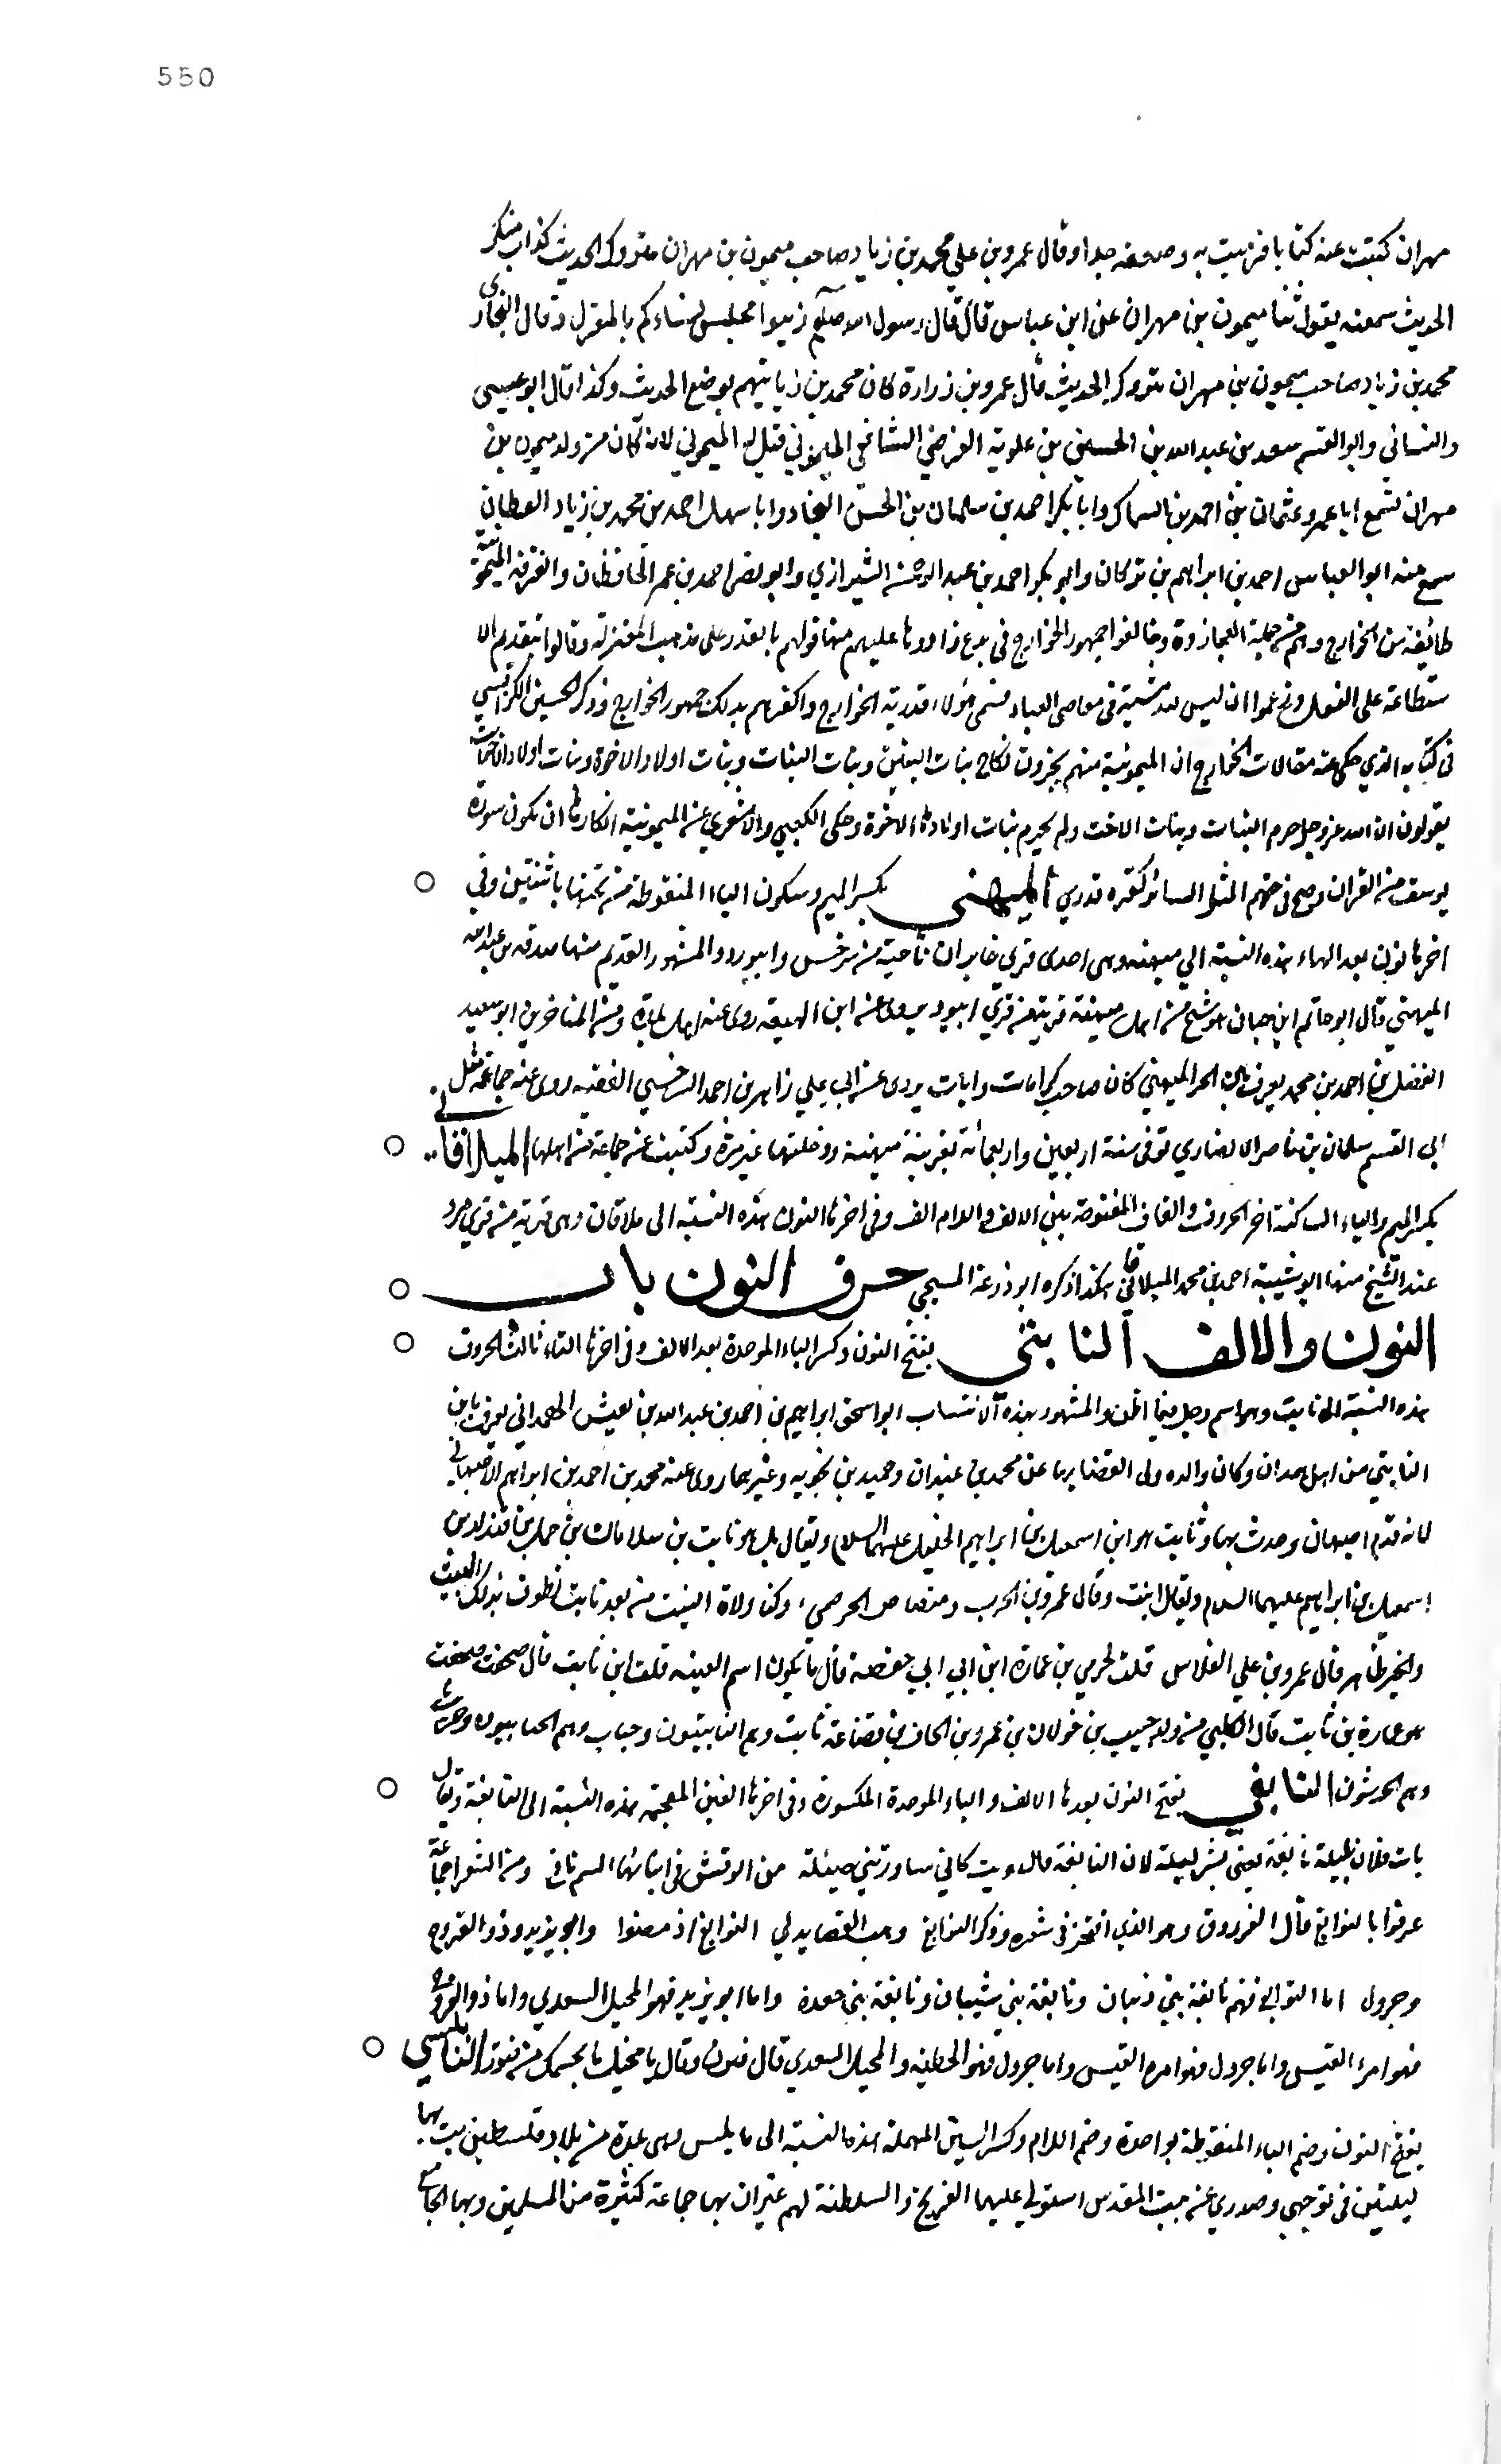 550
مهران كتبت عنه كتابا فرميت به وضعفه جدا وقال عمرو بن علي محمد بن زياد صاحب ميمون بن مهران متروك الحديث كذاب منكر
الحديث سمعته يقول ثنا ميمون بن مهران عن ابن عباس قال قال رسول الله صلعم زينوا مجلس نساءكم بالمغزل وقال البخاري
محمد بن زياد صاحب ميمون بن مهران متروك الحديث قال عمرو بن زرارة كان محمد بن زياد يتهم بوضع الحديث وكذا قال ابو عيسى
والنسائي وابو القسم سعد بن عبد الله بن الحسين بن علويه الفرضي الشافعي الميموني قيل له الميموني لانه كان من ولد ميمون بن
مهران سمع ابا عمرو عثمان بن احمد بن السماك وابا بكر احمد بن سلمان بن الحسن النجاد وابا سهل احمد بن محمد بن زياد القطان
سمع منه ابو العباس احمد بن ابراهيم بن تركان وابو بكر احمد بن عبد الرحمن الشيرازي وابو نصر احمد بن عمر الحافظان والفرقة الميمونية
طائفة من الخوارج وهم من جملة العجاردة وخالفوا جمهور الخوارج في بدع زادوها عليهم منها قولهم بالقدر على مذهب المعتزلة وقالوا بتقديم الا
ستطاعة على الفعل وزعموا ان ليس لله مشية في معاصي العباد فسمى هؤلاء قدرية الخوارج واكفرهم بذلك جمهور الخوارج وذكر الحسين الكرابيسي
في كتابه الذي حكى فيه مقالات الخوارج ان الميمونية منهم يجيزون نكاح بنات البنين وبنات البنات وبنات اولاد الاخوة وبنات اولاد الاخوات
يقولون ان الله عز وجل حرم البنات وبنات الاخت ولم يحرم بنات اولاد الاخوة وحكى الكعبي والاشعري عن الميمونية انكارها ان يكون سورة
يوسف من القران وصح فيهم المثل السائر كفره قدري الميهني بكسر الميم وسكون الياء المنقوطة من تحتها باثنتين وفي
اخرها نون بعد الهاء هذه النسبة الى ميهنه وهى احدى قرى خابران ناحية من سرخس وابيورد والمشهور القديم منها صدقه بن عبد الله
الميهني قال ابو حاتم ابن حبان هو شيخ من اهل ميهنة قرية من قرى ابيورد يروى عن ابن الهيعه روى عنه اهل بلده ومن المتاخرين ابو سعيد
الفضل بن احمد بن محمد يعرف بابن ابي الخير الميهني كان صاحب كرامات وايات يروى عن ابي علي زاهر بن احمد السرخسي الفقيه روى عنه جماعة مثل
ابى القسم سلمان بن ناصر الانصاري توفى سنة اربعين واربعمائة بقرية ميهنة ودخلتها غير مرة وكتبت عن جماعة من اهلها الميلاقاني
بكسر الميم والياء الساكنة اخر الحروف والقاف المفتوحة بين الالف واللام الف وفى اخرها النون هذه النسبة الى ميلاقان وهى قرية من قرى مرو
عند الشيخ منها ابو شيبة احمد بن محمد الميلاقاني هكذا ذكره ابو زرعة المسيحي حرف النون باب
النون والالف النابتي بفتح النون وكسر الباء الموحدة بعد الالف وفى اخرها التاء ثالث الحروف
هذه النسبة الى نابت وهو اسم رجل فيما اظن والمشهور بهذه الانتساب ابو اسحق ابراهيم بن احمد بن عبد الله بن يعيش الهمداني يعرف بابن
النابتي من اهل همدان وكان والده ولى القضا بها عن محمد بن عبيدان وحميد بن زنجويه وغيرهما روى عنه محمد بن احمد بن ابراهيم الاصبهاني
لانه قدم اصبهان وحدث بها ونابت هو ابن اسمعيل بن ابراهيم الخليل عليهما السلام ويقال بل هو نابت بن سلامان بن حمل بن قيدار بن
اسمعيل بن ابراهيم عليهما السلام ويقال ابنت وقال عمرو بن الحرث بن مضاض الجرهمي وكنا ولاة البيت من بعد نابت نطوف بذلك البيت
والخير ظاهر وقال عمرو بن علي الفلاس قلت لحرمي بن عمارة ابن ابي حفصة قال ما يكون اسم ابيه قلت ابن ثابت قال صحفت صحفت
هو عمارة بن نابت قال الكلبي من ولد حبيب بن خولان بن عمرو بن الحاف بن قضاعة نابت وهم النابتيون وحباب وهم الحبابيون وحرثان
وهم الحرثون النابغي بفتح النون بعدها الالف والباء الموحدة المكسورة وفى اخرها الغين المعجمة هذه النسبة الى النابغة ويقال
بات فلان بليلة نابغة يعنى بشر ليلة لان النابغة قال وبت كاني ساورتني ضئيلة من الرقش في انيابها السم ناقع ومن الشعراء جماعة
عرفوا بالنوابغ قال الفرزدق وهو الذي افتخر في شعره وذكر النوابغ وهب القصايد لي النوابغ اذ مضوا وابو يزيد وذو القروح
وجرول اما النوابغ فهم نابغة بني ذبيان ونابغة بني شيبان ونابغة بني جعدة واما ابو يزيد فهو المخبل السعدي واما ذو القروح
فهو امرء القيس واما جرول فهو امرء القيس واما جرول فهو الحطيئه والمخبل السعدي النابلسي
بفتح النون وضم الباء المنقوطة بواحدة وضم اللام وكسر السين المهملة هذه النسبة الى نابلس وهى بلدة من بلاد فلسطين بت بها
ليلتين فى توجهي وصدوري عن بيت المقدس استولى عليها الفرنج والسلطنة لهم غير ان بها جماعة كثيرة من المسلمين وبها الجامع